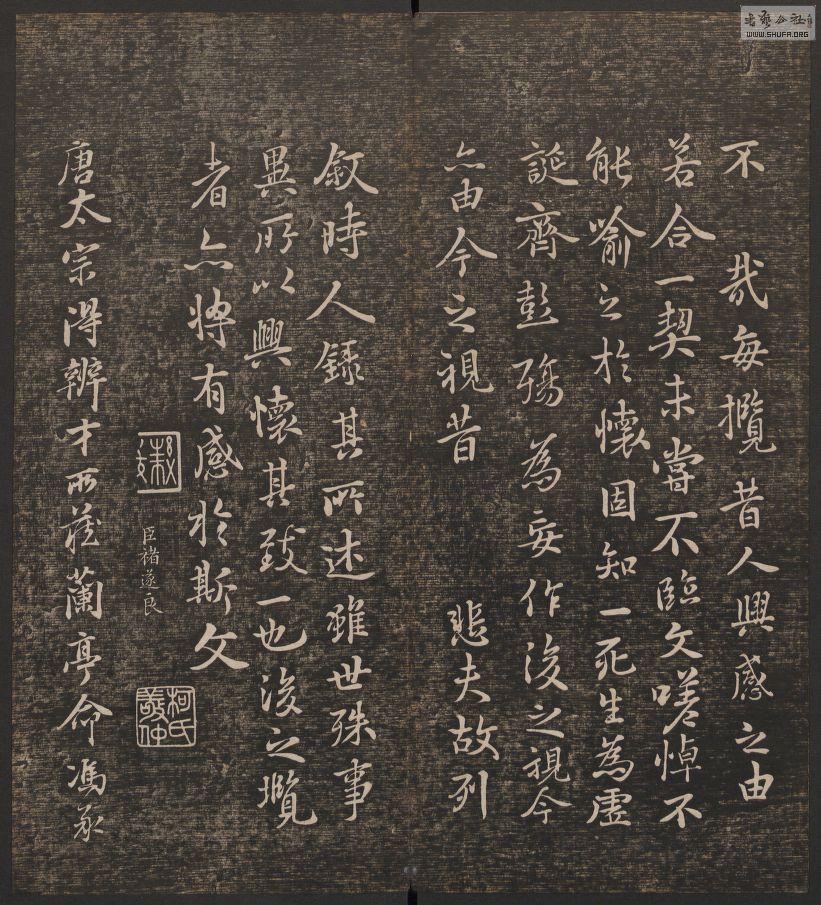 不 哉每攬昔人興感之由
若合一契未嘗不臨文嗟悼不
能喻之於懷固知一死生為虛
誕齊彭殤為妄作後之視今
亦由今之視昔 悲夫故列
敘時人錄其所述雖世殊事
異所以興懷其致一也後之攬
者亦將有感於斯文
臣褚遂良
柯氏
敬仲
唐太宗得辨才所藏蘭亭命馮承
書藝公社
WWW.SHUFA.ORG